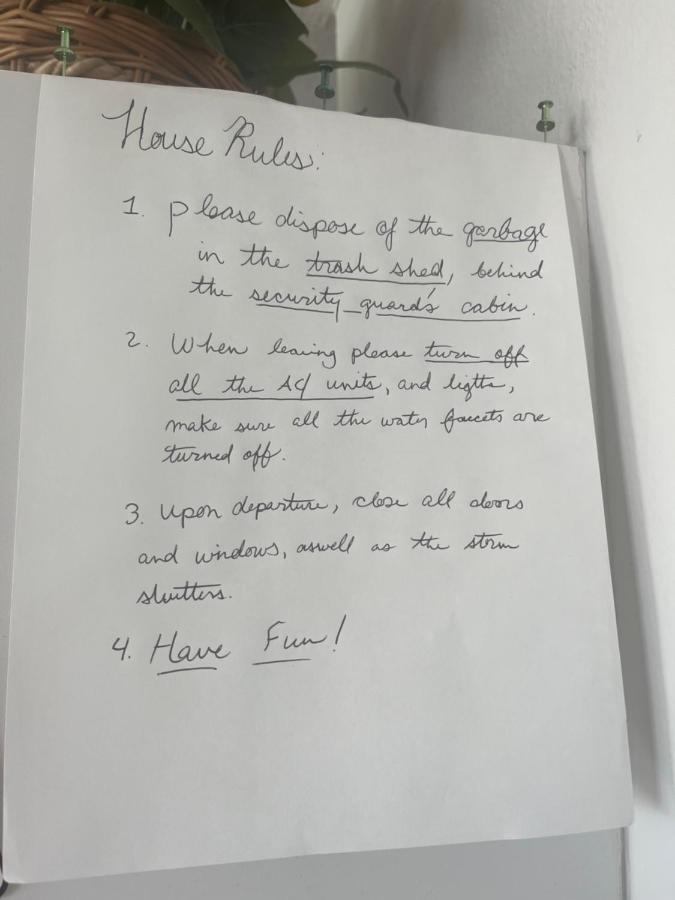 House Rules:
1. please dispose of the garbage
in the trash shed, behind
the security guard's cabin.
2. When leaving please turn off
all the AC units, and lights,
make sure all the water faucets are
turned off.
3. Upon departure, close all doors
and windows, aswell as the storm
shutters.
4. Have Fun!